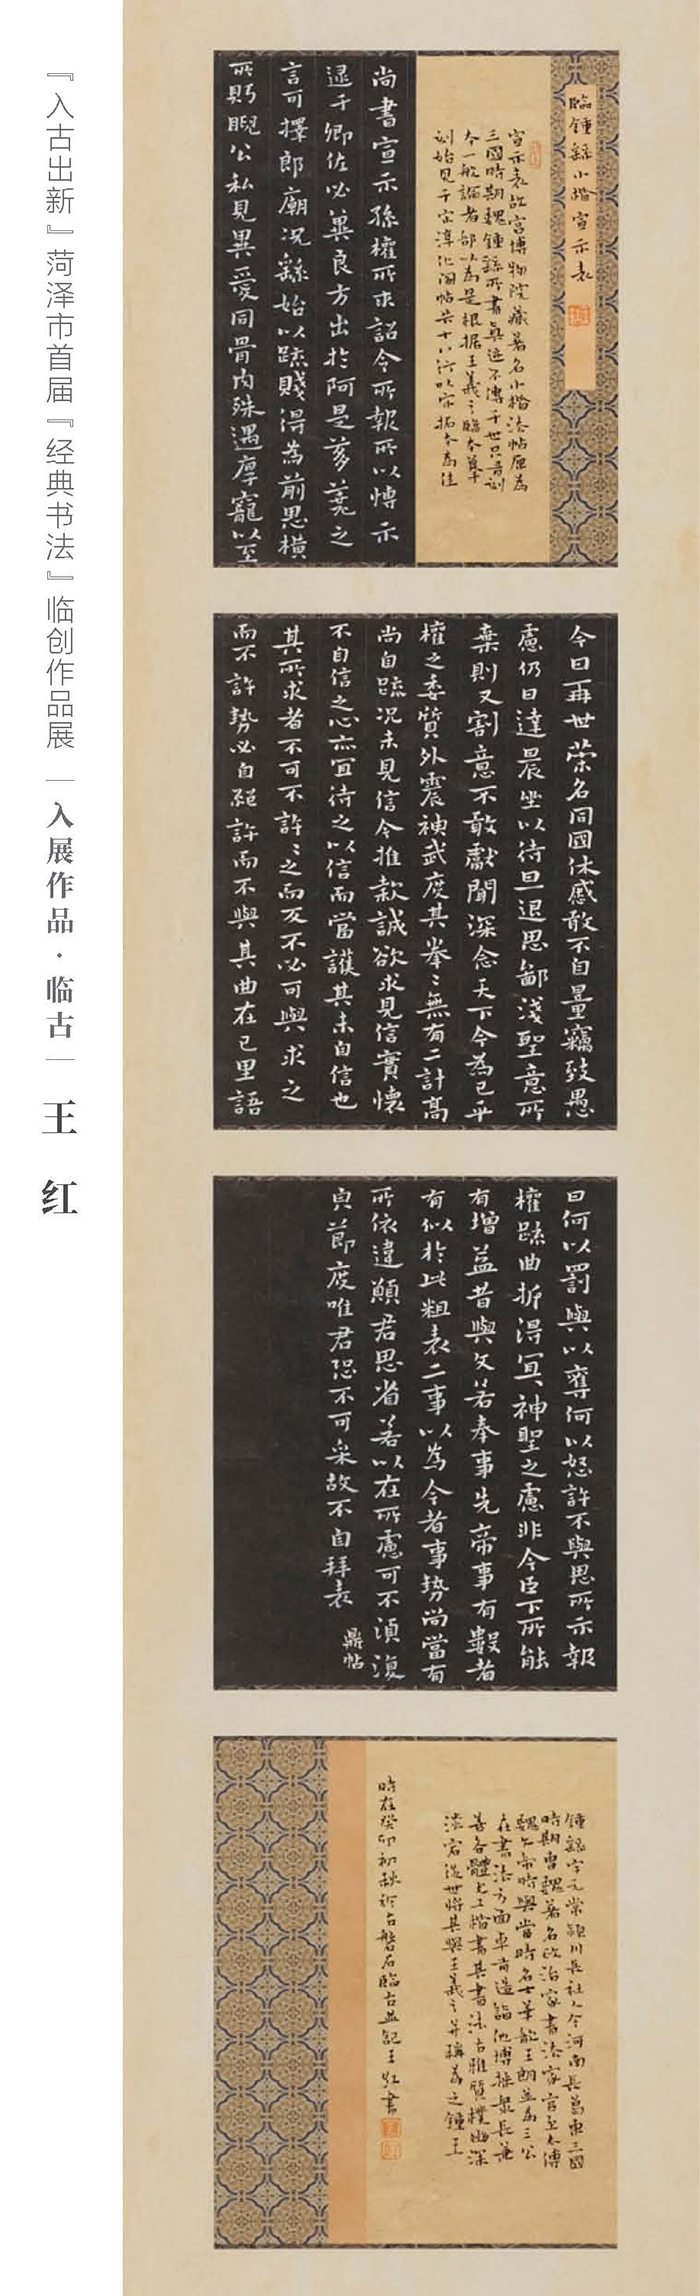 『入古出新』菏泽市首届『经典书法』临创作品展｜入展作品·临古｜王 红
臨鍾繇小楷宣示表
宣示表故宫博物院藏著名小楷法帖原為
三國時期魏鍾繇所書真迹不傳于世只有刻
本一般論者都以為是根据王羲之臨本摹
刻始見于宋淳化閣帖共十八行以宋拓本為佳
尚書宣示孫權所求詔令所報所以博示
逮于卿佐必冀良方出於阿是芻蕘之
言可擇郎廟況繇始以疏賤得為前恩橫
所眄睨公私見異愛同骨肉殊遇厚寵以至
今日再世榮名同國休慼敢不自量竊致愚
慮仍日達晨坐以待旦退思鄙淺聖意所
棄則又割意不敢獻聞深念天下今為已平
權之委質外震神武度其拳〻無有二計高
尚自疏況未見信今推款誠欲求見信實懷
不自信之心亦宜待之以信而當護其未自信也
其所求者不可不許〻之而反不必可與求之
而不許勢必自絕許而不與其曲在己里語
曰何以罰與以奪何以怒許不與思所示報
權疏曲折得宜神聖之慮非今臣下所能
有增益昔與文若奉事先帝事有數者
有似於此粗表二事以為今者事勢尚當有
所依違願君思省若以在所慮可不須復
貞節度唯君恐不可采故不自拜表
鼎帖
鍾繇字元常潁川長社人今河南長葛東三國
時期曹魏著名政治家書法家官至太傅
魏文帝時與當時名士華歆王朗並為三公
在書法方面卓有造詣他博採眾長兼
善各體尤工楷書其書法古雅質樸幽深
淡宕後世將其與王羲之并稱為之鍾王
時在癸卯初秋於古磐石臨古並記王红書